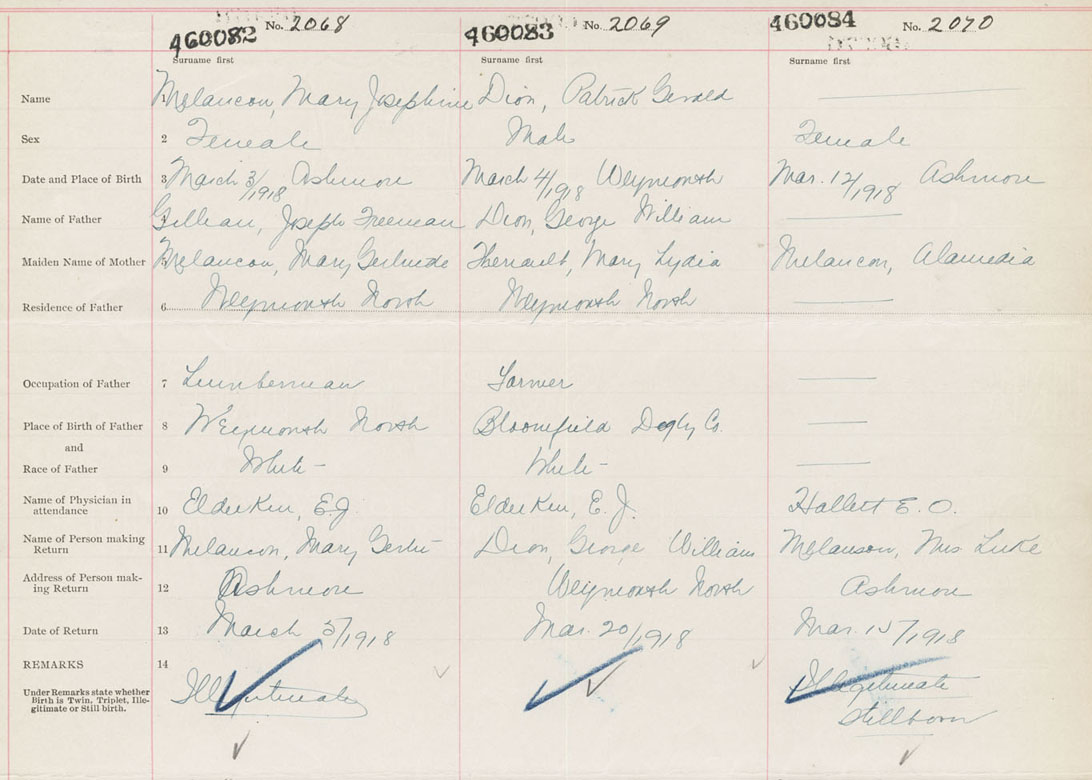 460082 No. 2068 460083 No. 2069 460084 No. 2070
Surname first Surname first Surname first
Name 1 Melancon, Mary Josephine Dion, Patrick Gerald
Sex 2 Female Male Female
Date and Place of Birth 3 March 3/1918 Ashmore March 4/1918 Weymouth Mar. 12/1918 Ashmore
Name of Father 4 Gillian, Joseph Freeman Dion, George William
Maiden Name of Mother 5 Melancon, Mary Gertrude Mary Lydia Melancon,
Residence of Father 6 Weymouth North Weymouth North
Occupation of Father 7 Lumberman Farmer
Place of Birth of Father 8 Weymouth North Bloomfield Digby Co.
and
Race of Father 9 White - White -
Name of Physician in
attendance 10 Elderkin, E.J. Elderkin, E. J. Hallett E. O.
Name of Person making
Return 11 Melancon, Mary Dion, George William Melanson, Mrs Luke
Address of Person mak-
ing Return 12 Ashmore Weymouth North Ashmore
Date of Return 13 March 5/1918 Mar. 20/1918 Mar. 15/1918
REMARKS 14
Under Remarks state whether
Birth is Twin, Triplet, Ille-
gitimate or Still birth. Illegitimate Illegitimate
Stillborn